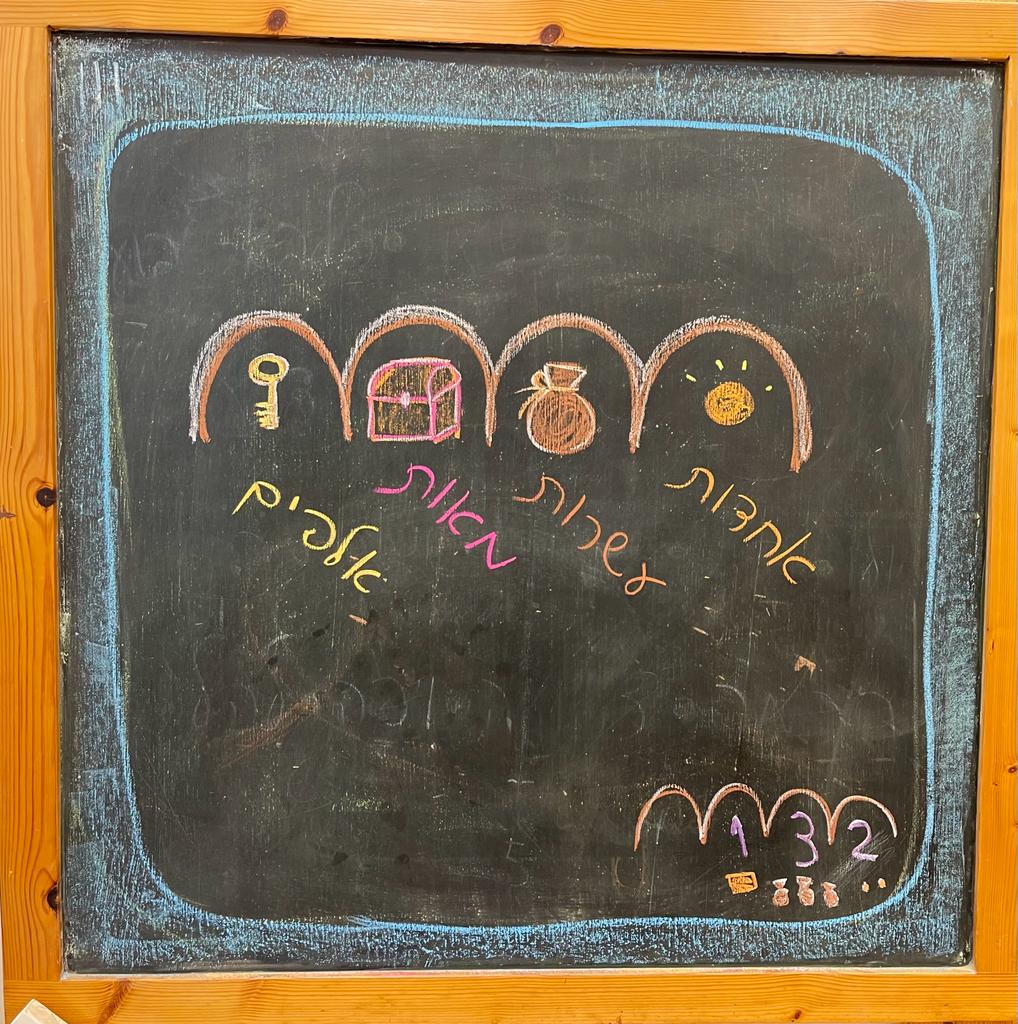 אחדות
עשרות
מאות
אלפים
1 3 2